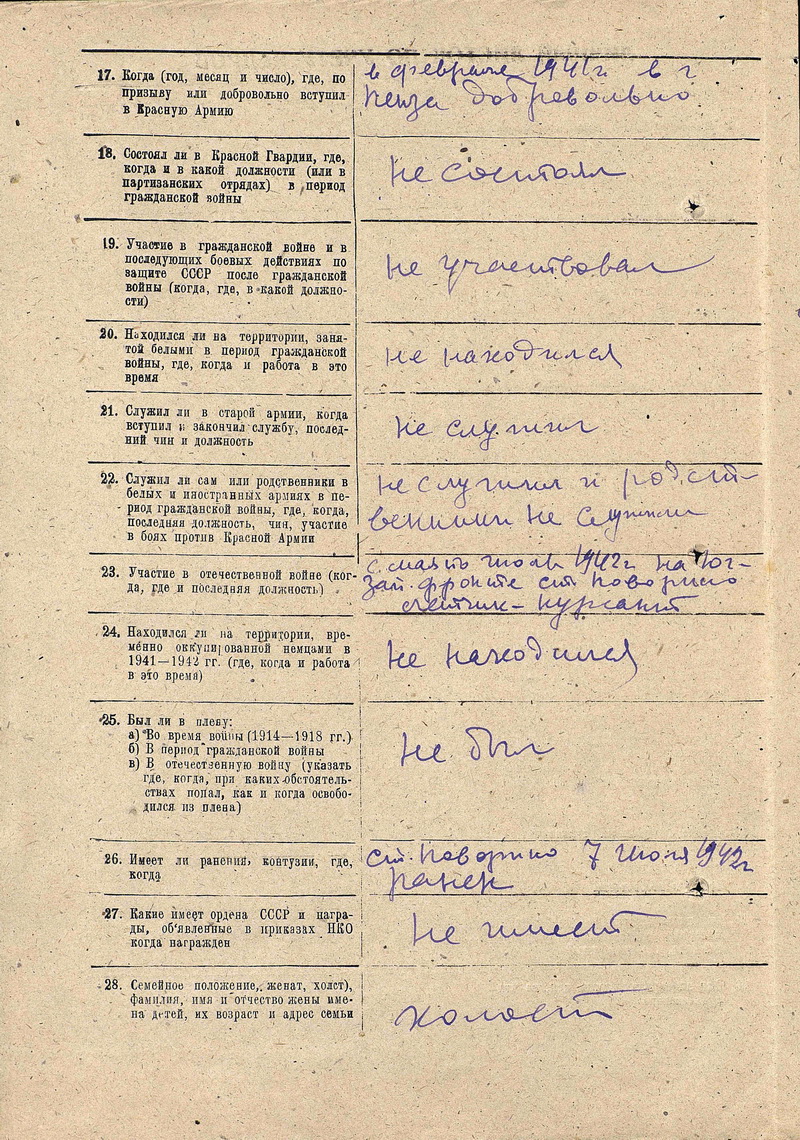 17. Когда (год, месяц и число), где, по
призыву или добровольно вступил
в Красную Армию
в феврале 1941 г в г
Пенза добревольно
18. Состоял ли в Красной Гвардии, где,
когда и в какой должности (или в
партизанских отрядах) в период
гражданской войны
не состоял
19. Участие в гражданской войне и в
последующих боевых действиях по
защите СССР после гражданской
войны (когда, где, в какой должно-
сти)
не участвовал
20. Находился ли на территории, заня-
той белыми в период гражданской
войны, где, когда и работа в это
время
не находился
21. Служил ли в старой армии, когда
вступил и закончил службу, послед-
ний чин и должность
не служил
22. Служил ли сам или родственники в
белых и иностранных армиях в пе-
риод гражданской войны, где, когда,
последняя должность, чин, участие
в боях против Красной Армии
не служил и родст-
венники не служили
23. Участие в отечественной войне (ког-
да, где и последняя должность)
с мая по июль 1942 г на Юг-
Зап. фронте ст. Поворино
летчик - курсант
24. Находился ли на территории, вре-
менно оккупированной немцами в
1941—1942 гг. (где, когда и работа
в это время)
не находился
25. Был ли в плену:
а) Во время войны (1914—1918 гг.)
б) В период гражданской войны
в) В отечественную войну (указать
где, когда, при каких обстоятель-
ствах попал, как и когда освобо-
дился из плена)
не был
26. Имеет ли ранения, контузии, где,
когда
ст. Поворино 7 июля 1942 г
ранен
27. Какие имеет ордена СССР и награ-
ды, объявленные в приказах НКО
когда награжден
не имеет
28. Семейное положение, женат, холст),
фамилия, имя и отчество жены име-
на детей, их возраст и адрес семьи
холост